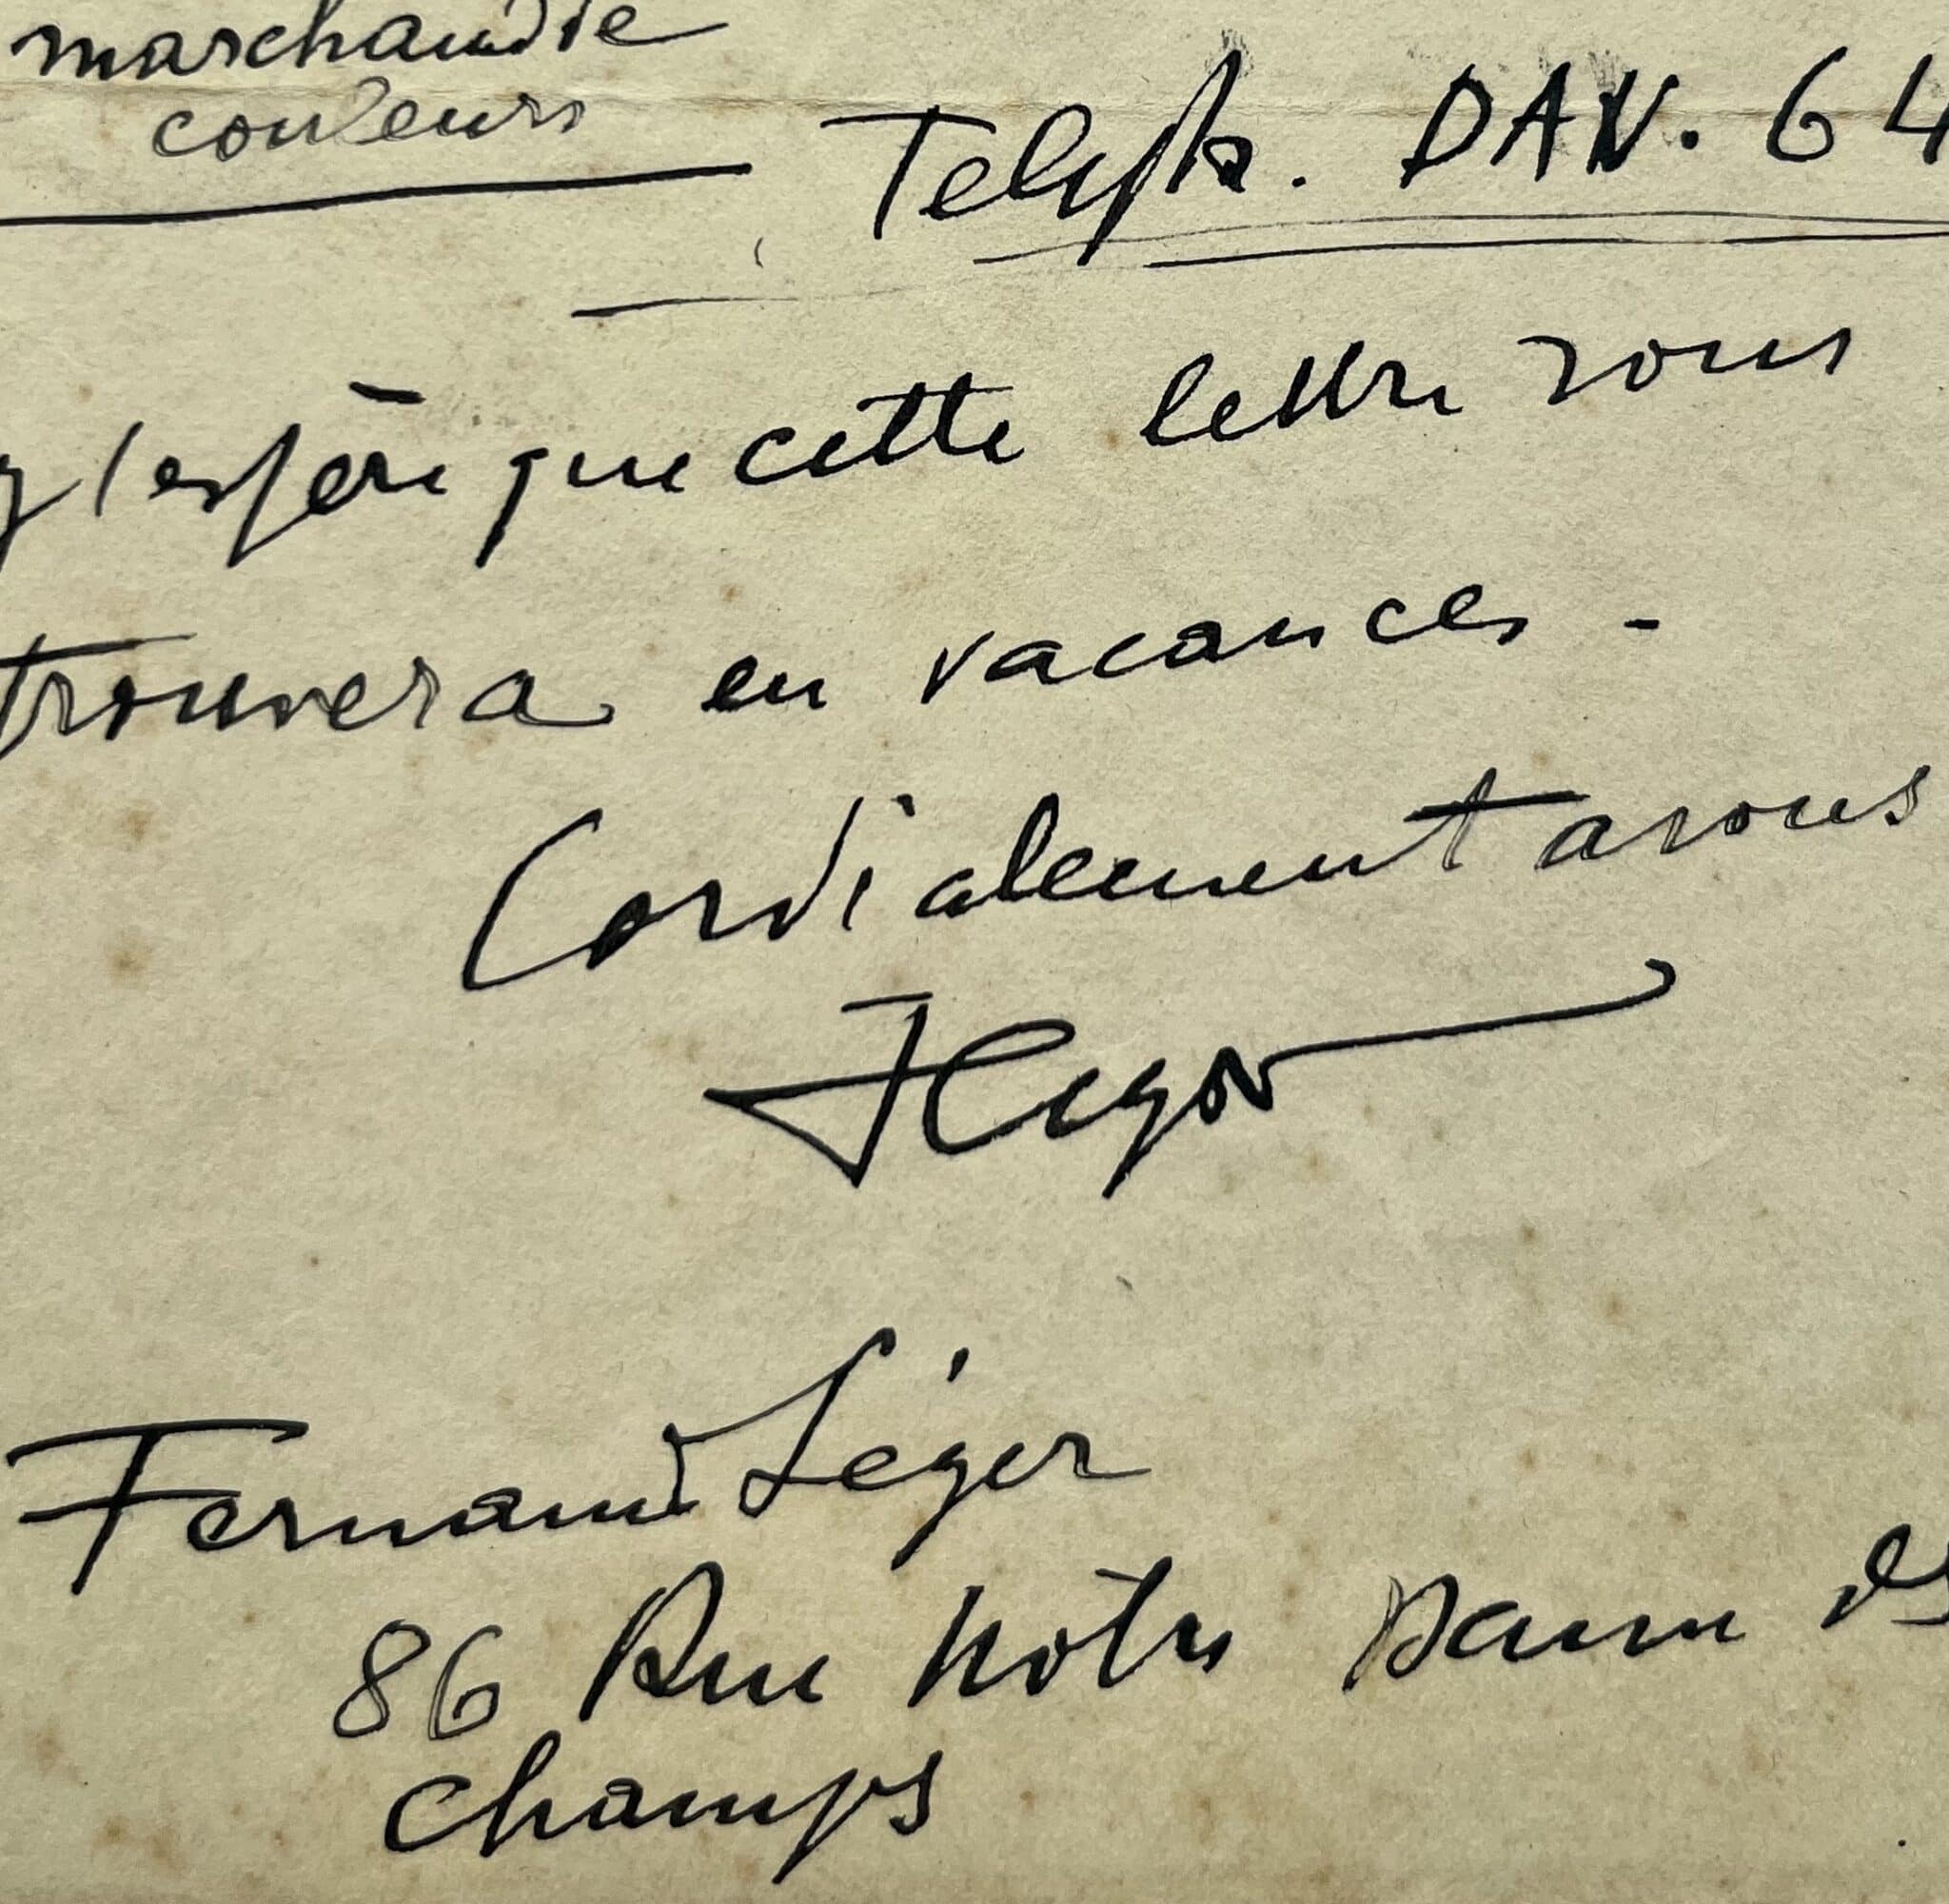 marchand de
couleurs
Teleph. DAN. 64
j'espère que cette lettre vous
trouvera en vacances -
Cordialement a vous
FLeger
Fernand Léger
86 Rue Notre Dame des
Champs